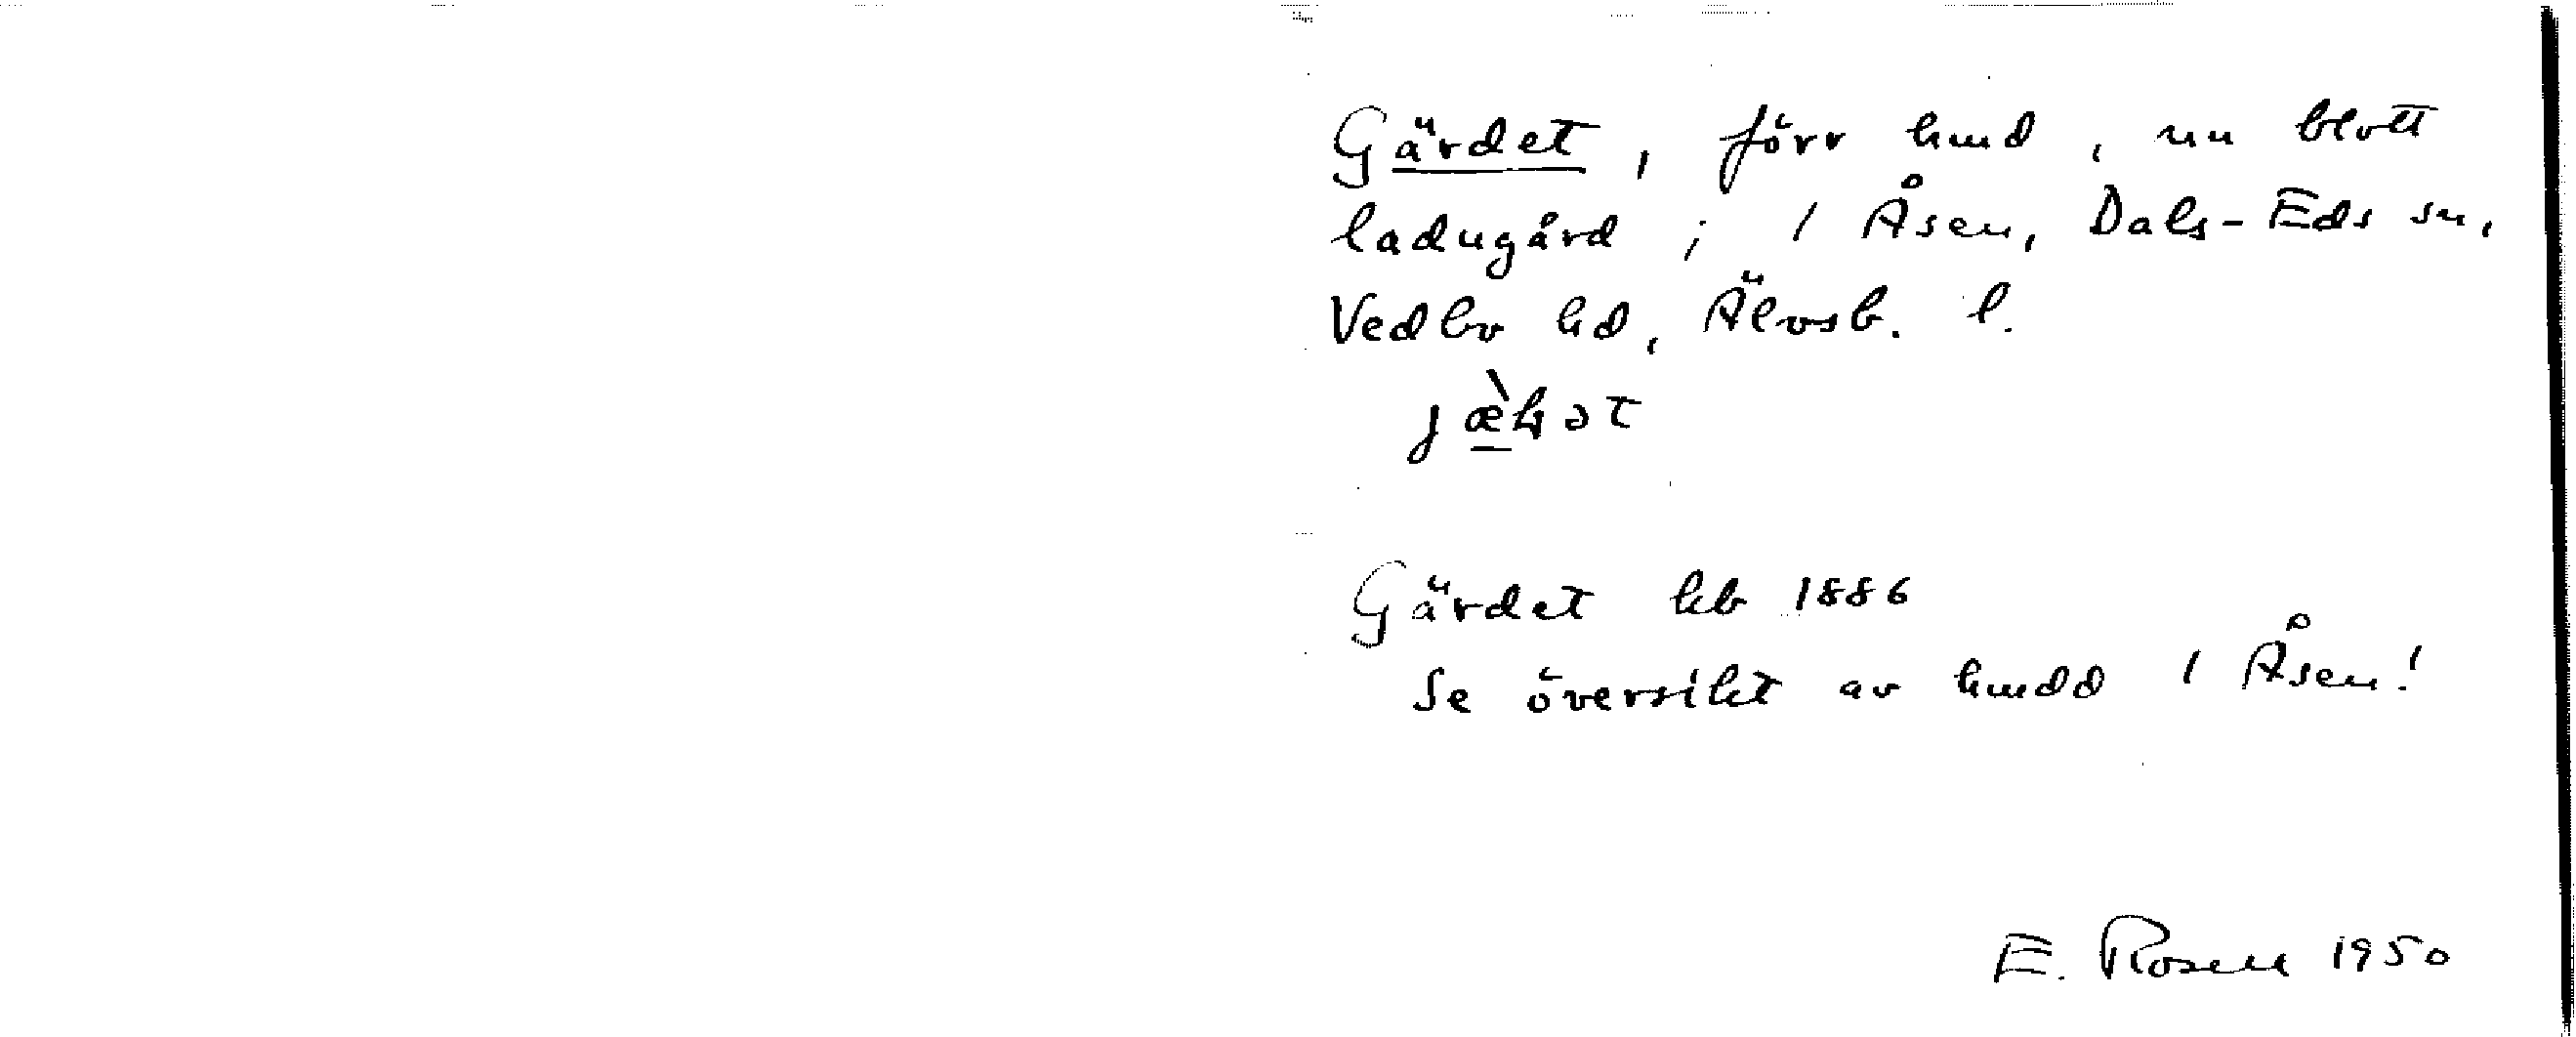 Gärdet, förr hmd, nu blott
ladugård; 1 Åsen, Dals-Eds sn,
Vedbo hd, Älvsb. l.
Gärdet kb 1886
Se översikt av hmdd 1 Åsen!
E. Rosell 1950